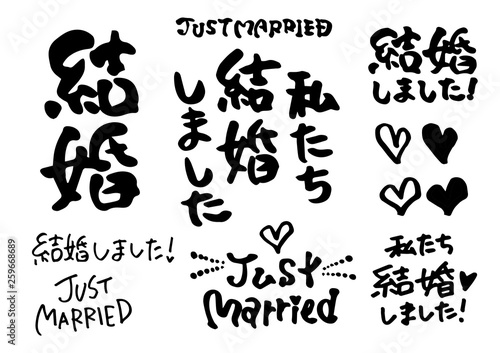 結婚
JUST MARRIED
私たち
結婚
しました
結婚
しました!
結婚しました!
JUST
MARRIED
Just
Married
私たち
結婚
しました!
Adobe Stock | #259668689